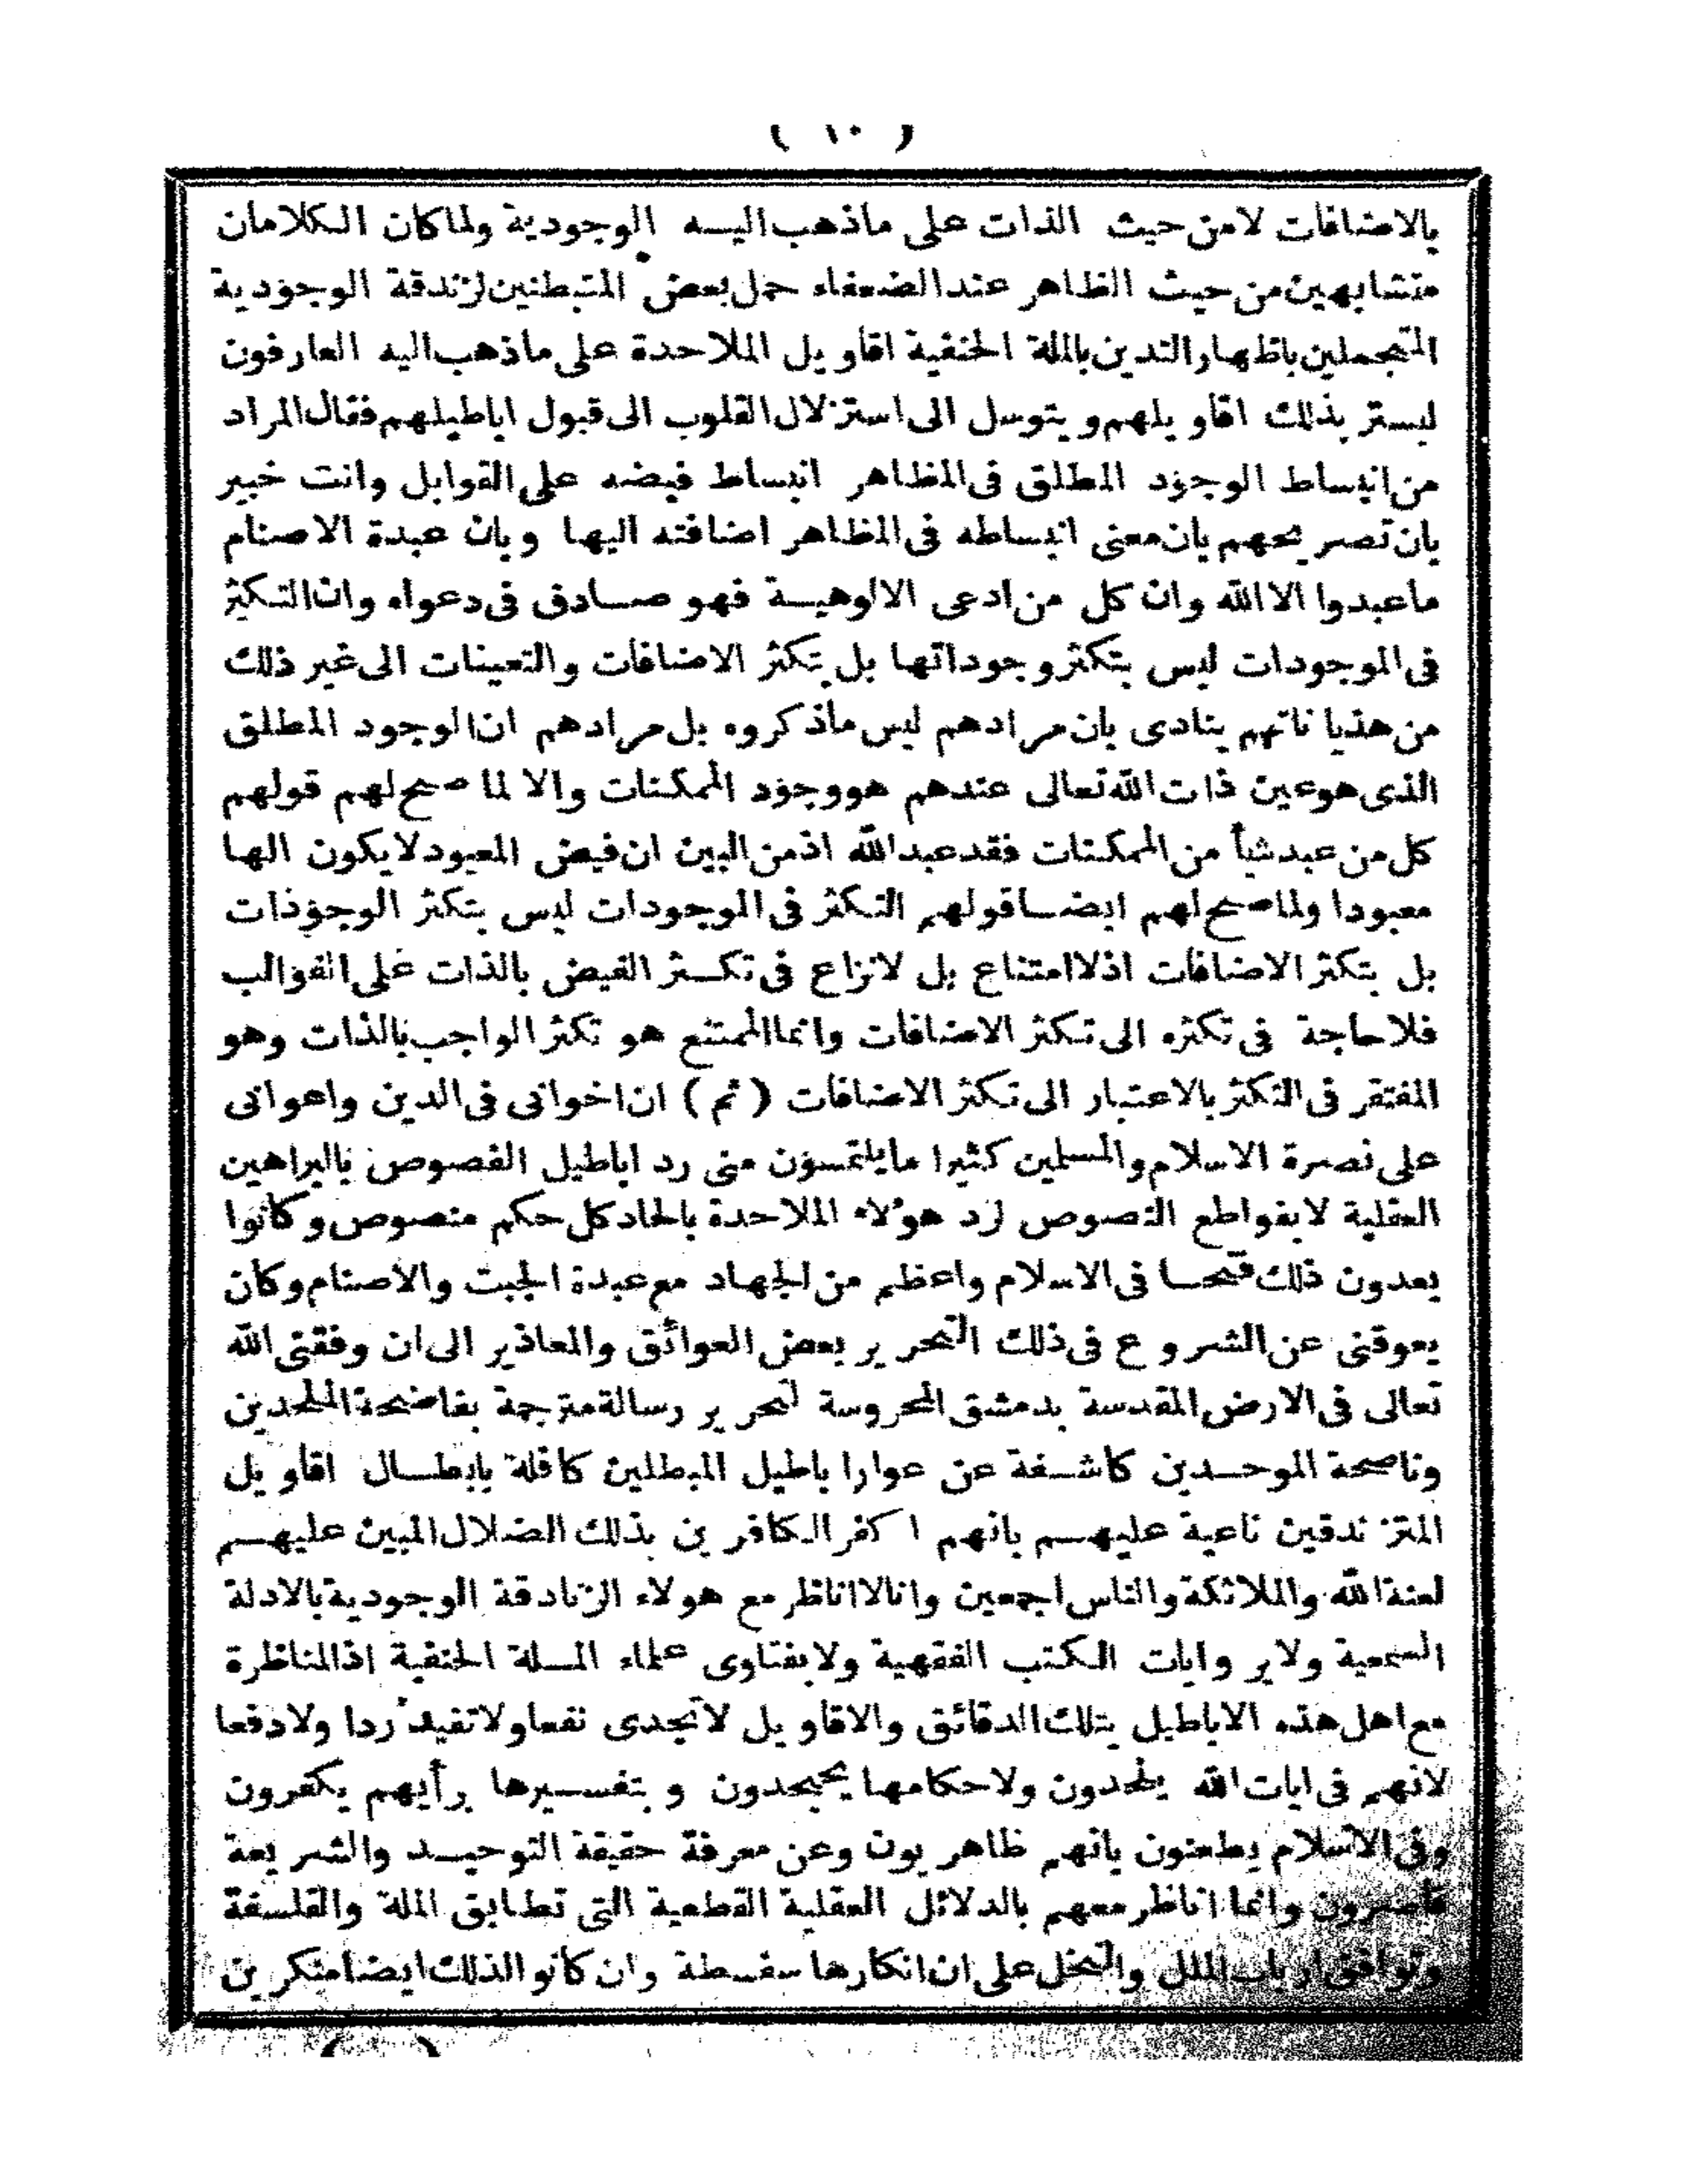 ( ١٠ )
بالاضافات لامن حيث الذات على ماذهب اليه الوجودية ولما كان الكلامان
متشابهين من حيث الظاهر عند الضعفاء حمل بعض المتبطنين لزندقة الوجودية
المتجملين باظهار التدين بالملة الحنفية اقاويل الملاحدة على ماذهب اليه العارفون
ليستر بذلك اقاويلهم ويتوسل الى استزلال القلوب الى قبول اباطيلهم فقال المراد
من انبساط الوجود المطلق فى المظاهر انبساط فيضه على القوابل وانت خبير
بان تصريحهم بان معنى انبساطه فى المظاهر اضافته اليها وبان عبدة الاصنام
ماعبدوا الا الله وان كل من ادعى الالوهية فهو صادق فى دعواه وان التكثر
فى الموجودات ليس بتكثر وجوداتها بل بتكثر الاضافات والتعينات الى غير ذلك
من هذياناتهم ينادى بان مرادهم ليس ماذكروه بل مرادهم ان الوجود المطلق
الذى هو عين ذات الله تعالى عندهم هو وجود الممكنات والا لما صح لهم قولهم
كل من عبد شيأ من الممكنات فقد عبد الله اذ من البين ان فيض المعبود لا يكون الها
معبودا ولما صح لهم ايضا قولهم التكثر فى الموجودات ليس بتكثر الوجودات
بل بتكثر الاضافات اذ لا امتناع بل لا نزاع فى تكثر الفيض بالذات على القوالب
فلا حاجة فى تكثره الى تكثر الاضافات وانما الممتنع هو تكثر الواجب بالذات وهو
المفتقر فى التكثر بالاعتبار الى تكثر الاضافات ( ثم ) ان اخوانى فى الدين واعوانى
على نصرة الاسلام والمسلمين كثيرا ما يلتمسون منى رد اباطيل الفصوص بالبراهين
العقلية لا بقواطع النصوص لرد هؤلاء الملاحدة بالحاد كل حكم منصوص وكانوا
يعدون ذلك فتحا فى الاسلام واعظم من الجهاد مع عبدة الجبت والاصنام وكان
يعوقنى عن الشروع فى ذلك التحرير بعض العوائق والمعاذير الى ان وفقنى الله
تعالى فى الارض المقدسة بدمشق المحروسة لتحرير رسالة مترجمة بفاضحة الملحدين
وناصحة الموحدين كاشفة عن عوار اباطيل المبطلين كافلة بابطال اقاويل
المتزندقين ناعية عليهم بانهم اكفر الكافرين بذلك الضلال المبين عليهم
لعنة الله والملائكة والناس اجمعين وانا لا اناظر مع هولاء الزنادقة الوجودية بالادلة
السمعية ولا بروايات الكتب الفقهية ولا بفتاوى علماء الملة الحنفية اذ المناظرة
مع اهل هذه الاباطيل بتلك الدقائق والاقاويل لا تجدى نفعا ولا تفيد ردا ولا دفعا
لانهم فى ايات الله يلحدون ولاحكامها يجحدون وبتفسيرها برأيهم يكفرون
وفى الاسلام يطعنون بانهم ظاهريون وعن معرفة حقيقة التوحيد والشريعة
قاصرون وانما اناظر معهم بالدلائل العقلية القطعية التى تطابق الملة والفلسفة
وتوافق ارباب الملل والنحل على ان انكارها سفسطة وان كانو الذلك ايضا منكرين